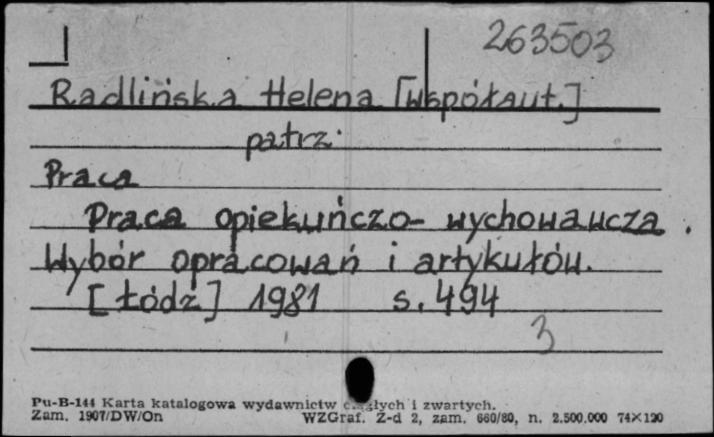 263503
Radlińska Helena [współaut.]
patrz:
Praca
Praca opiekuńczo-wychowawcza.
Wybór opracowań i artykułów.
[Łódź] 1981 s. 494
3
Pu-B-144 Karta katalogowa wydawnictw ciągłych i zwartych.
Zam. 1907/DW/On WZGraf. Z-d 2, zam. 660/80, n. 2.500.000 74×120